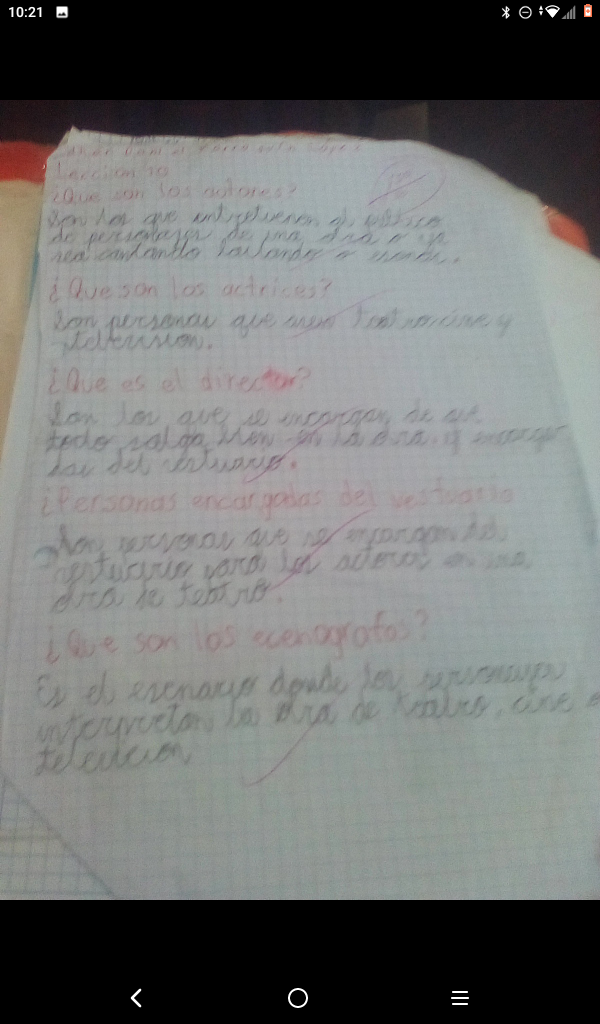 10:21
¿Que son los actores?
Son los que entretienen al público
de personajes de una obra o ya
sea cantando bailando o
¿Que son los actrices?
Son personas que teatro cine y
television.
¿Que es el director?
Son los que se encargan de que
todo salga bien en la obra, y encargar
del vestuario.
¿Personas encargadas del vestuario
Son personas que se encargan del
vestuario para los actores en una
obra de teatro.
¿Que son los ecenografos?
Es el escenario donde los personajes
interpretan la obra de teatro, cine o